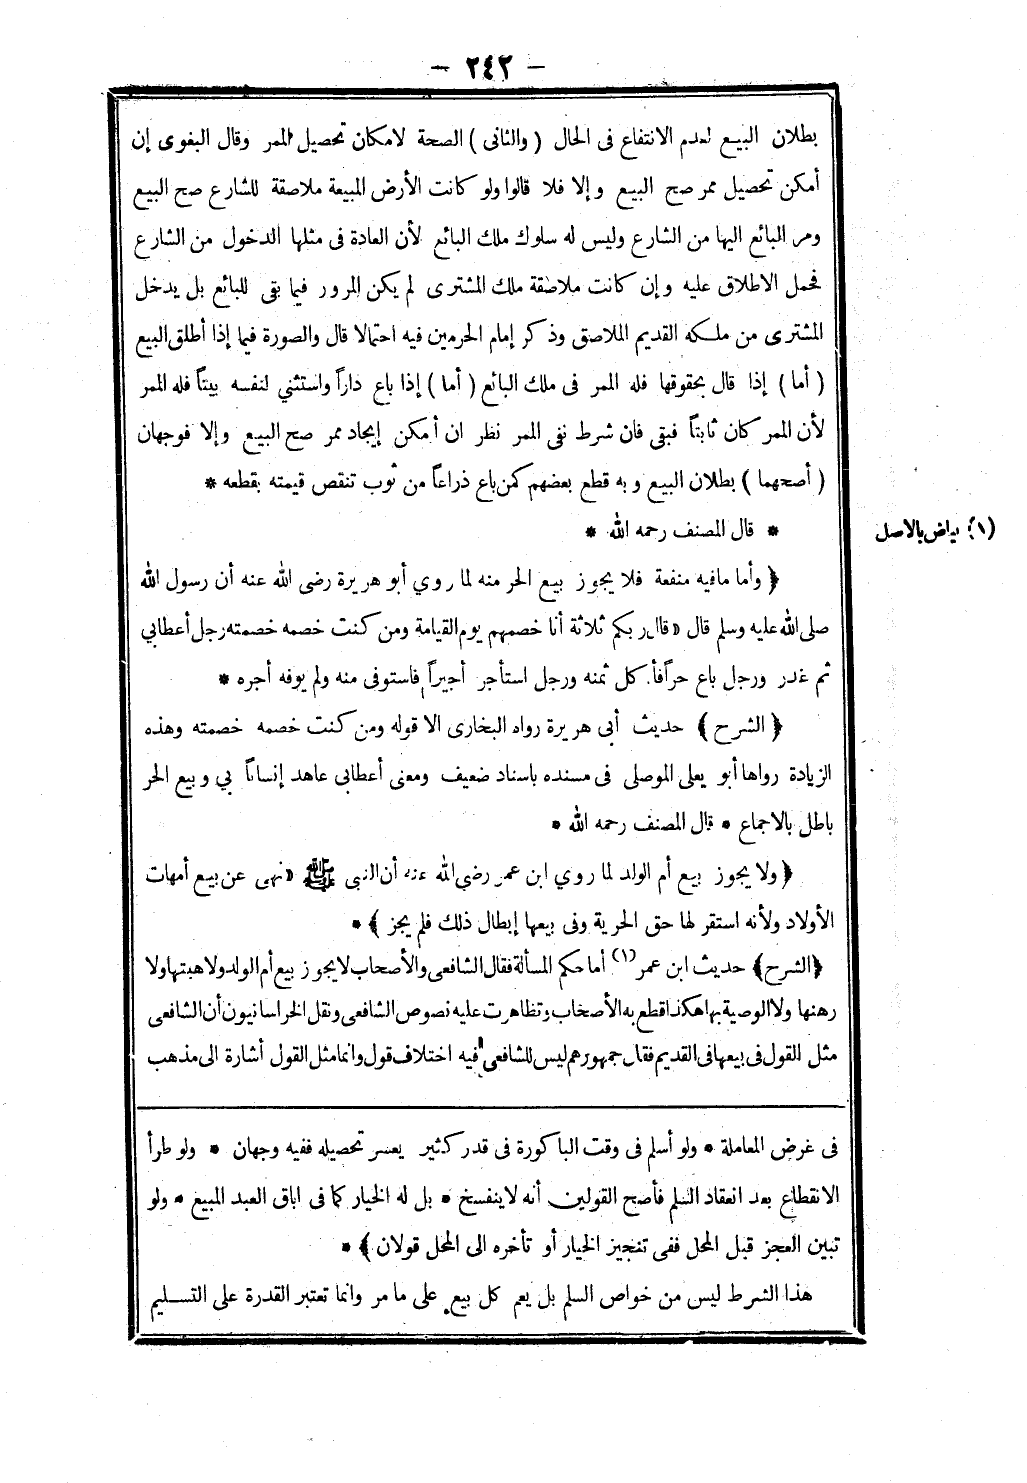 — ٢٤٢ —
بطلان البيع لعدم الانتفاع فى الحال ( والثانى ) الصحة لامكان تحصيل الممر وقال البغوى إن
أمكن تحصيل ممر صح البيع وإلا فلا قالوا ولو كانت الأرض المبيعة ملاصقة للشارع صح البيع
ومر البائع اليها من الشارع وليس له سلوك ملك البائع لأن العادة فى مثلها الدخول من الشارع
فحمل الاطلاق عليه وإن كانت ملاصقة ملك المشترى لم يكن المرور فيما بقى للبائع بل يدخل
المشترى من ملكه القديم الملاصق وذكر إمام الحرمين فيه احتمالا قال والصورة فيما إذا أطلق البيع
( أما ) إذا قال بحقوقها فله الممر فى ملك البائع ( أما ) إذا باع داراً واستثني لنفسه بيتاً فله الممر
لأن الممر كان ثابتاً فبقى فان شرط نفى الممر نظر ان أمكن إيجاد ممر صح البيع وإلا فوجهان
( أصحهما ) بطلان البيع وبه قطع بعضهم كمن باع ذراعاً من ثوب تنقص قيمته بقطعه *
* قال المصنف رحمه الله *
(١) بياض بالاصل
﴿ وأما مافيه منفعة فلا يجوز بيع الحر منه لما روي أبو هريرة رضى الله عنه أن رسول الله
صلى الله عليه وسلم قال «قال ربكم ثلاثة أنا خصمهم يوم القيامة ومن كنت خصمه خصمته رجل أعطابي
ثم غدر ورجل باع حراً فأكل ثمنه ورجل استأجر أجيراً فاستوفى منه ولم يوفه أجره *
﴿ الشرح ﴾ حديث أبى هريرة رواه البخارى الا قوله ومن كنت خصمه خصمته وهذه
الزيادة رواها أبو يعلى الموصلى فى مسنده باسناد ضعيف ومعنى أعطابى عاهد إنساناً بي وبيع الحر
باطل بالاجماع * قال المصنف رحمه الله *
﴿ ولا يجوز بيع أم الولد لما روي ابن عمر رضي الله عنه أن النبى ﷺ «نهى عن بيع أمهات
الأولاد ولأنه استقر لها حق الحرية وفى بيعها إبطال ذلك فلم يجز ﴾ *
﴿الشرح﴾ حديث ابن عمر(١) أما حكم المسألة فقال الشافعى والأصحاب لا يجوز بيع أم الولد ولا هبتها ولا
رهنها ولا الوصية بها هكذا قطع به الأصحاب وتظاهرت عليه نصوص الشافعى ونقل الخراسانيون أن الشافعى
مثل القول فى بيعها فى القديم فقال جمهورهم ليس للشافعى فيه اختلاف قول وانما مثل القول أشارة الى مذهب
فى غرض المعاملة * ولو أسلم فى وقت الباكورة فى قدر كثير يعسر تحصيله ففيه وجهان * ولو طرأ
الانقطاع بعد انعقاد السلم فأصح القولين أنه لاينفسخ * بل له الخيار كما فى اباق العبد المبيع * ولو
تبين العجز قبل المحل ففى تنجيز الخيار أو تأخره الى المحل قولان ﴾ *
هذا الشرط ليس من خواص السلم بل يعم كل بيع على ما مر وانما تعتبر القدرة على التسليم